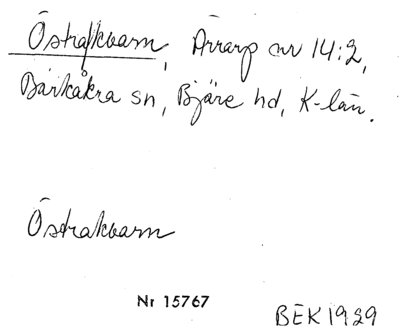 Östrakvarn, Ärrarp nr 14:2,
Barkåkra sn, Bjäre hd, K-län.
Östrakvarn
Nr 15767
BEK 1929